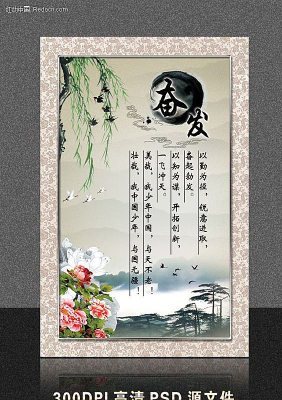 红动中国 Redocn.com
奋发
以勤为径，锐意进取，
奋起勃发。
以知为谋，开拓创新，
一飞冲天。
美哉，我少年中国，与天不老！
壮哉，我中国少年，与国无疆！
300DPI 高清 PSD 源文件